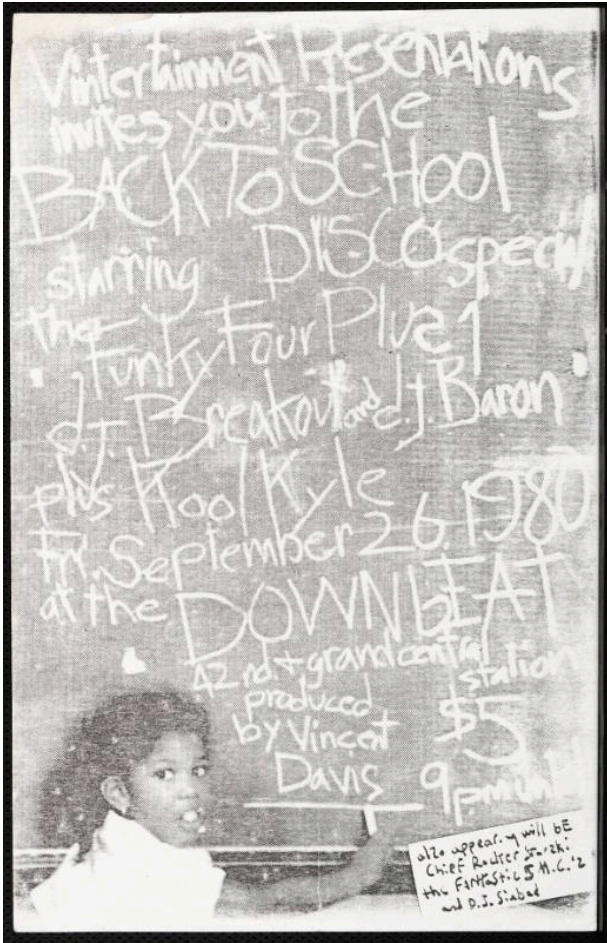 Vintertainment Presentations
invites you to the
BACK To SCHool
starring DISCO special
the
Funky Four Plus 1
d.j. Breakout and d.j. Baron
plus Kool Kyle
Fri. September 26. 1980
at the DOWNbEAT
42nd + grand central
station
produced
by Vincent
Davis
$5
9pm until
also appearing will bE
Chief Rocker
the Fantastic 5 M.C.'z
and D.J. Sinbad